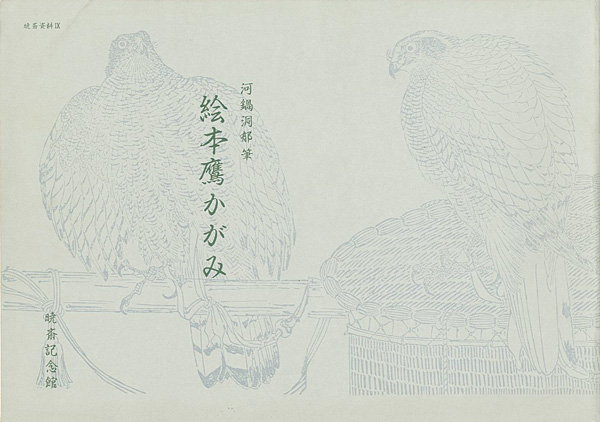 暁斎資料Ⅸ
河鍋洞郁筆
絵本鷹かがみ
暁斎記念館